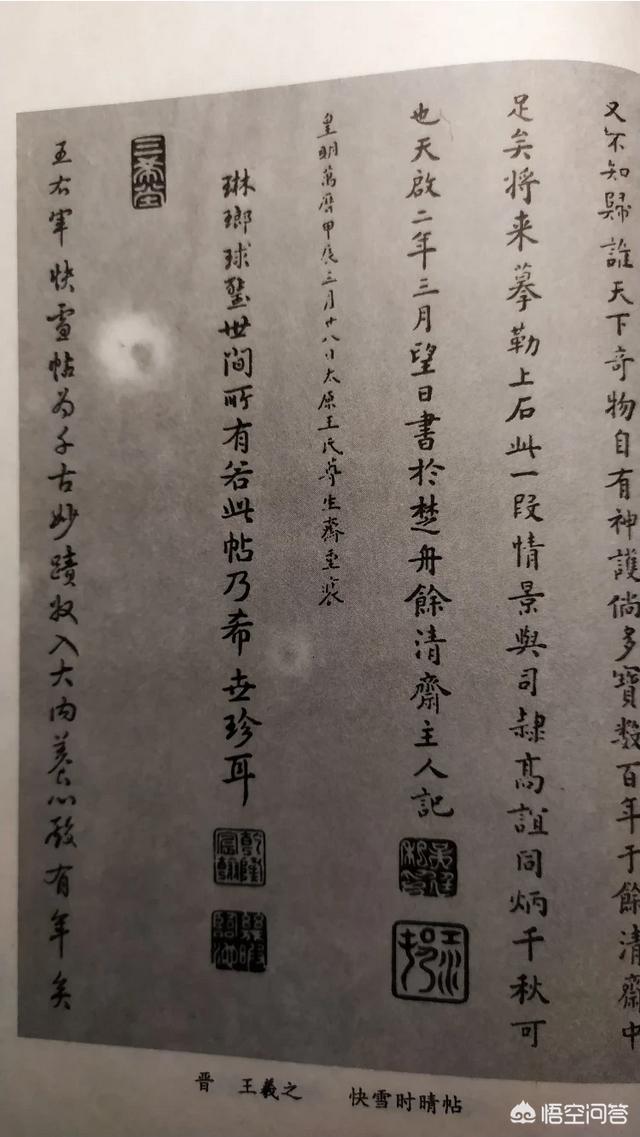 又不知歸誰天下奇物自有神護倘多寶數百年于餘清齋中
足矣将来摹勒上石此一段情景與司隷高誼同炳千秋可
也天啟二年三月望日書於楚舟餘清齋主人記
皇明萬曆甲辰三月廿八日太原王氏夢生齋重裝
琳瑯球璧世間所有若此帖乃希世珍耳
乾隆宸翰
三希堂
王右軍快雪帖為千古妙蹟收入大內養心殿有年矣
晋 王羲之 快雪时晴帖
悟空问答